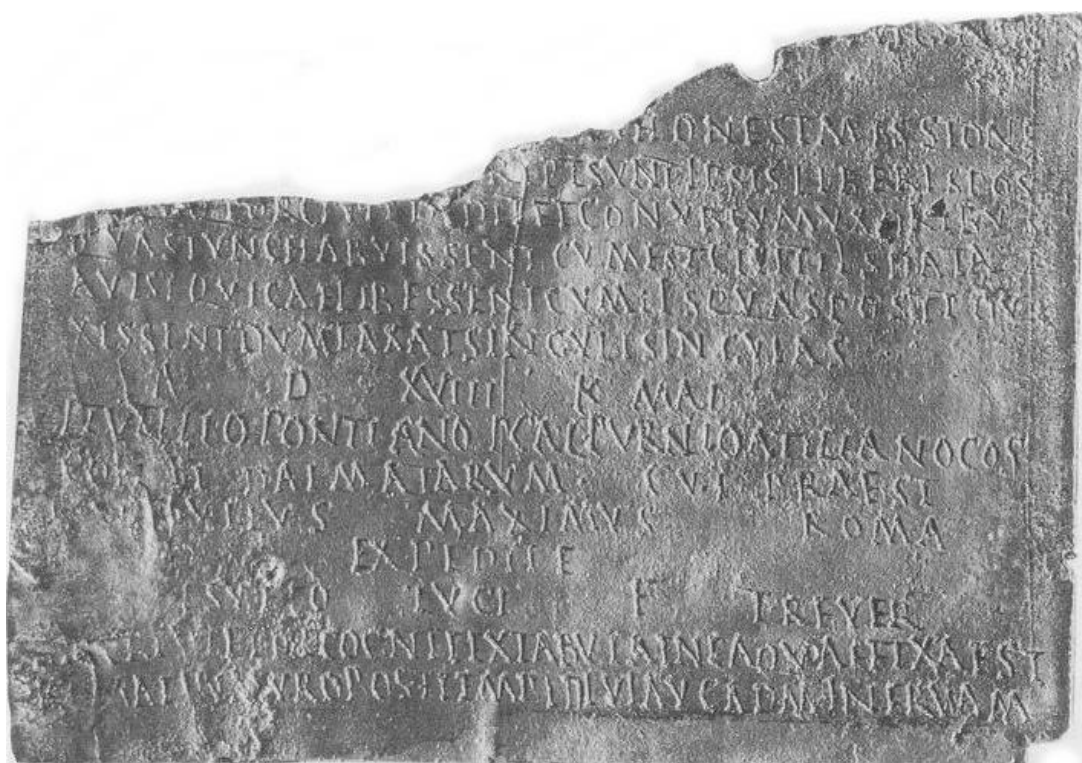 HONEST MISSION
SVNT IPSIS LIBERISPOS
CONVB CVM VXORIBV
QVAS TVNC HABVISSENT CVM EST CIVIT IIS DATA
AVT SI QVI CAELIB ESSENT CVM IIS QVAS POST DV
XISSENT DVMTAXAT SINGVLI SINGVLAS
A D XVIII K MAI
L TVTILIO PONTIANO P CALPVRNIO ATILIANO COS
COH I DALMATARVM CVI PRAEST
IVLIVS MAXIMVS ROMA
EXPEDITE
LVCI F TREVER
ET RECOGNIT EX TABVLA AENEA QVAE FIXA EST
MVRO POST TEMPL DIVI AVG AD MINERVAM